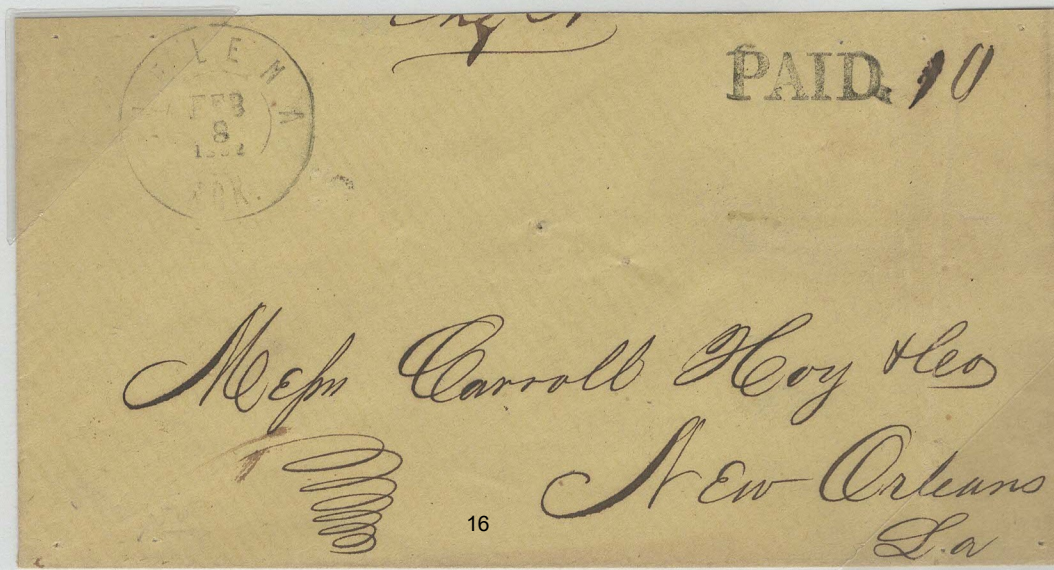 HELENA
FEB
8
1862
ARK.
PAID 10
Messrs Carroll Hoy & Co
New Orleans
La
16